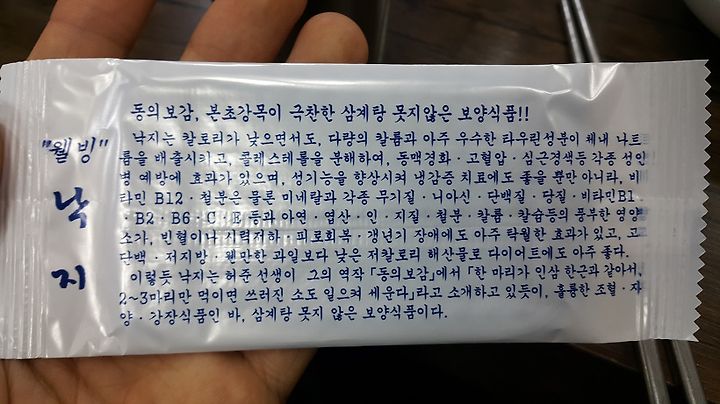 "웰빙"
낙
지
동의보감, 본초강목이 극찬한 삼계탕 못지않은 보양식품!!
낙지는 칼로리가 낮으면서도, 다량의 칼륨과 아주 우수한 타우린성분이 체내 나트
륨을 배출시키고, 콜레스테롤을 분해하여, 동맥경화·고혈압·심근경색등 각종 성인
병 예방에 효과가 있으며, 성기능을 향상시켜 냉감증 치료에도 좋을 뿐만 아니라, 비
타민 B12·철분은 물론 미네랄과 각종 무기질·니아신·단백질·당질·비타민B1
·B2·B6·C·E 등과 아연·엽산·인·지질·철분·칼륨·칼슘등의 풍부한 영양
소가, 빈혈이나 시력저하·피로회복·갱년기 장애에도 아주 탁월한 효과가 있고, 고
단백·저지방·웬만한 과일보다 낮은 저칼로리 해산물로 다이어트에도 아주 좋다.
이렇듯 낙지는 허준 선생이 그의 역작 「동의보감」에서 「한 마리가 인삼 한근과 같아서,
2~3마리만 먹이면 쓰러진 소도 일으켜 세운다」라고 소개하고 있듯이, 훌륭한 조혈·자
양·강장식품인 바, 삼계탕 못지 않은 보양식품이다.